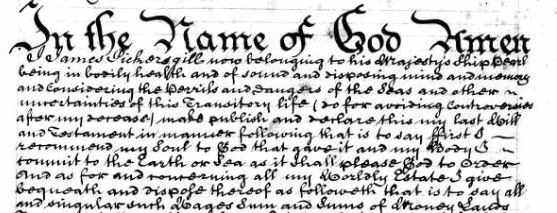 In the Name of God Amen
I James Pickersgill now belonging to his Majestys Ship Pearl
being in bodily health and of sound and disposing mind and memory
and Considering the Perrils and dangers of the Seas and other
uncertainties of this Transitory life (do for avoiding Controversies
after my decease) make publish and declare this my last Will
and Testament in manner following that is to say first I
recommend my Soul to God that gave it and my Body I
commit to the Earth or Sea as it shall please God to Order
And as for and concerning all my Worldly Estate I give
bequeath and dispose thereof as followeth that is to say all
and singular such Wages Sum and Sums of Money Lands